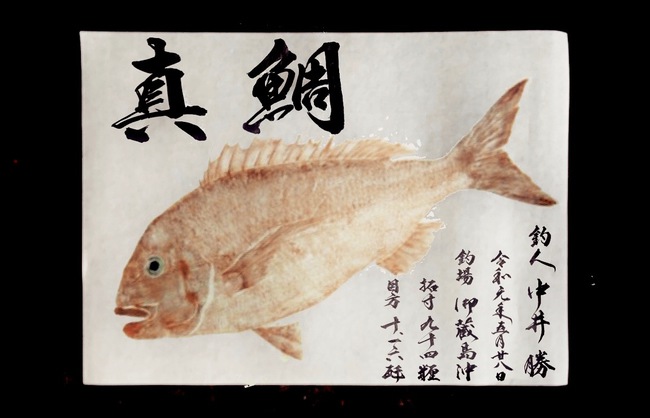 真鯛
釣人 中井 勝
令和元年五月廿八日
釣場 御蔵島沖
拓寸 九十四糎
目方 十、一六瓩